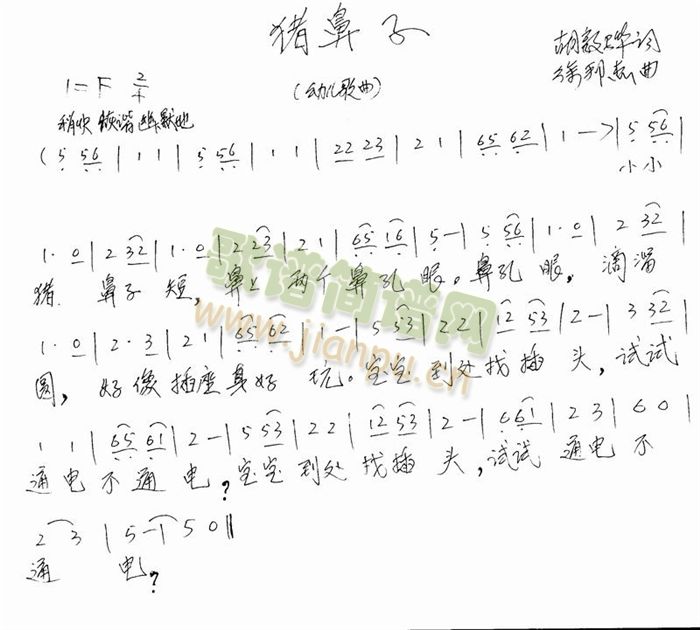 猪鼻子
胡敦骅词
徐邦杰曲
1=F 2/4
(幼儿歌曲)
稍快 诙谐幽默地
(5 56 | 1 1 | 5 56 | 1 1 | 22 23 | 2 1 | 65 62 | 1 —> | 5 56 |
小小
1· 0 | 2 32 | 1· 0 | 2 23 | 2 1 | 65 16 | 5 - | 5 56 | 1· 0 | 2 32 |
猪 鼻子 短, 鼻上 两个 鼻孔 眼。鼻孔 眼, 滴溜
1· 0 | 2· 3 | 2 1 | 65 62 | 1 - | 5 53 | 22 | 12 53 | 2 - | 3 32 |
圆, 好像插座真好 玩。宝宝 到处找插 头, 试试
1 1 | 65 61 | 2 - | 5 53 | 22 | 12 53 | 2 - | 6 61 | 2 3 | 6 0 |
通电不通 电?宝宝到处找插 头,试试 通电不
2 3 | 5 - | 5 0 ||
通 电?
歌谱简谱网
www.jianpu.cn